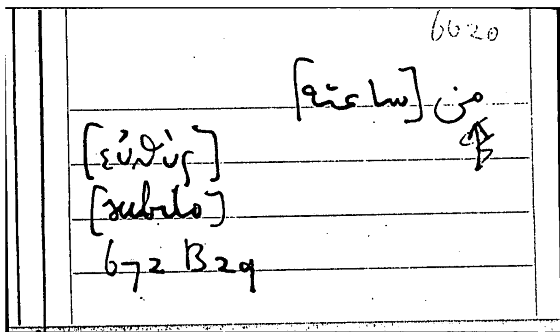 6620
من [ساعته]
[εὐθὺς]
[subito]
672 B29